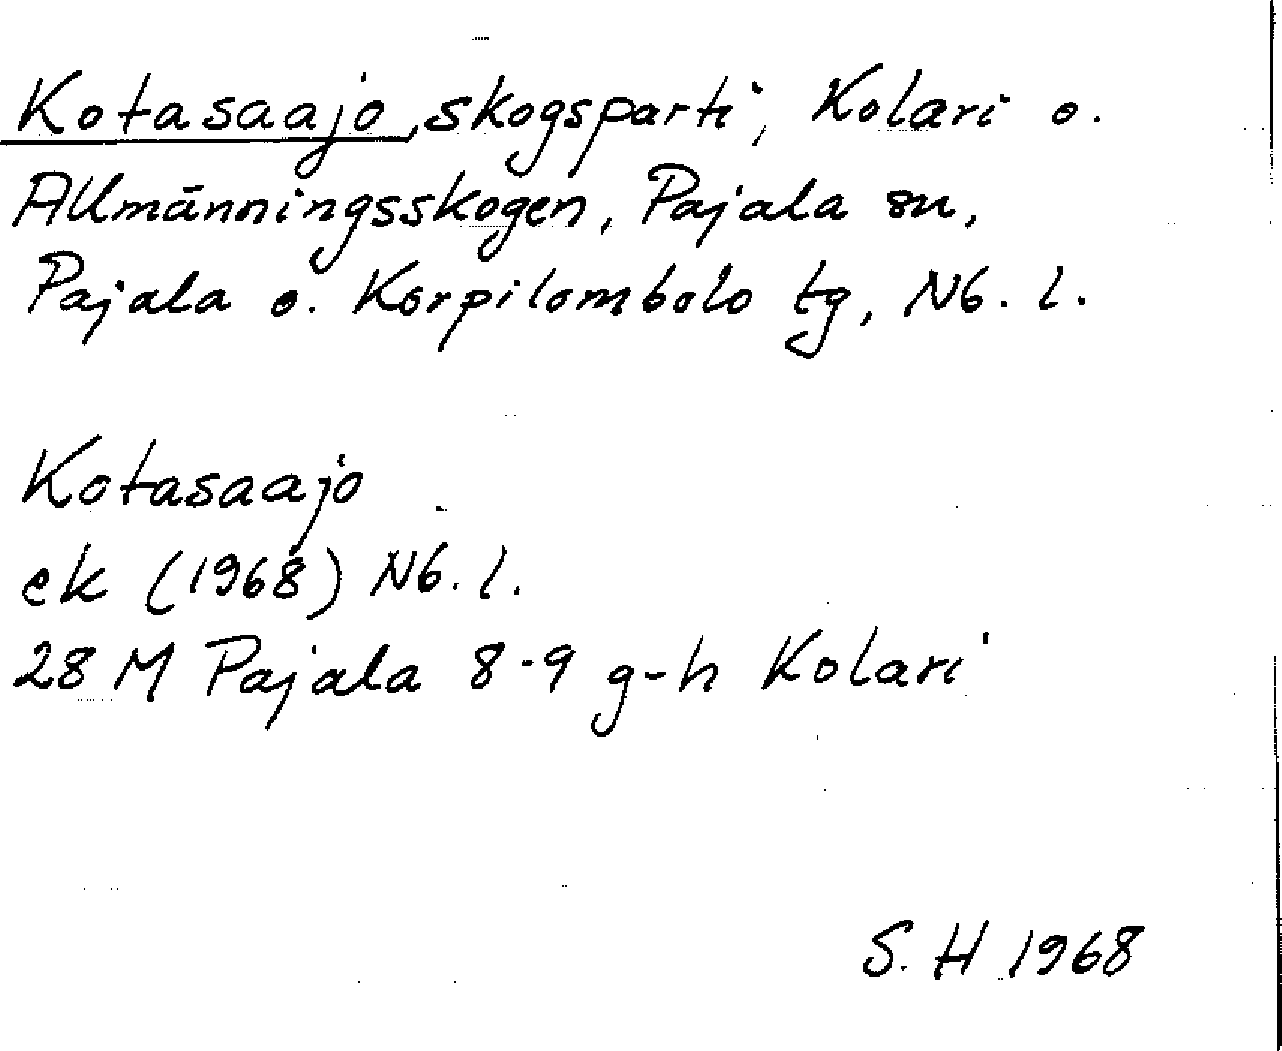 Kotasaajo, skogsparti, Kolari o.
Allmänningsskogen, Pajala sn,
Pajala o. Korpilombolo tg, Nb. l.
Kotasaajo
ek (1968) Nb. l.
28 M Pajala 8-9 g-h Kolari
S. H 1968